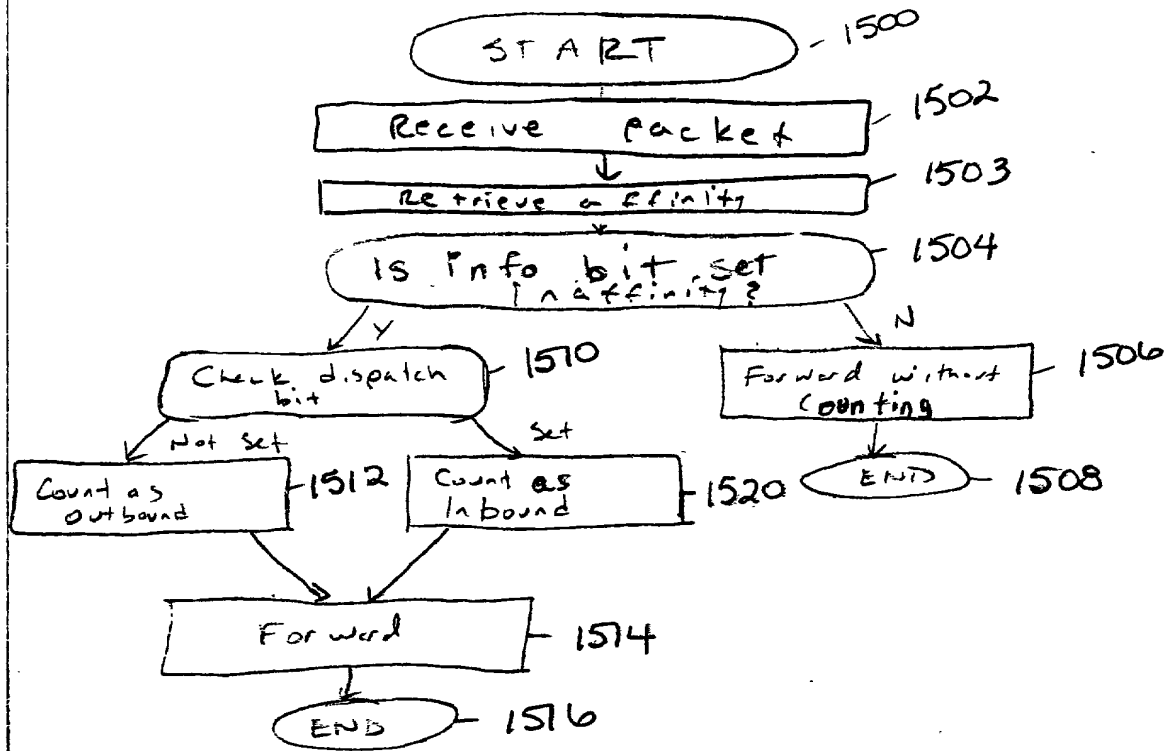 START
1500
Receive packet
1502
Retrieve affinity
1503
Is info bit set
in affinity?
1504
Y
N
Check dispatch
bit
1510
Forward without
Counting
1506
Not Set
Set
Count as
Outbound
1512
Count as
Inbound
1520
END
1508
Forward
1514
END
1516